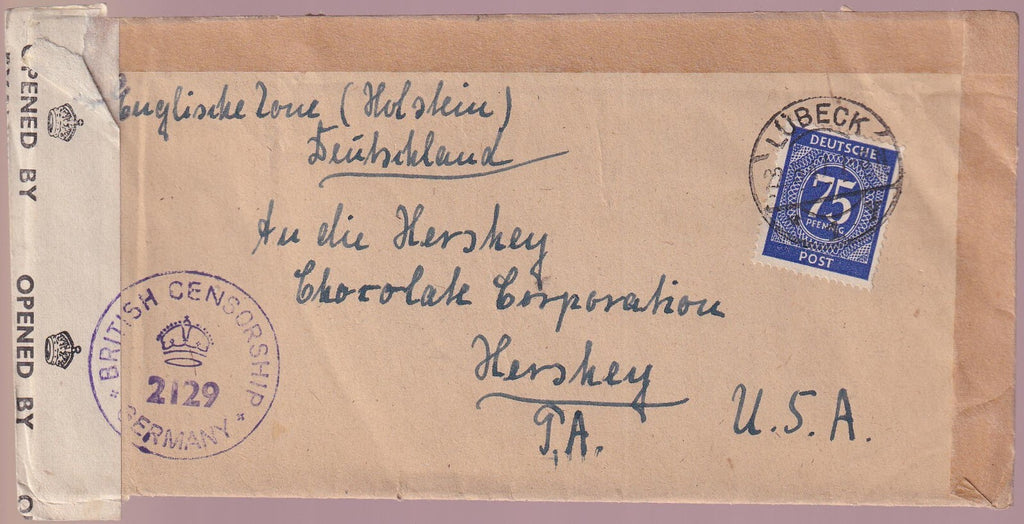 Englische Zone (Holstein)
Deutschland
An die Hershey
Chocolate Corporation
Hershey
P.A.
U.S.A.
LÜBECK
DEUTSCHE
75
PFENNIG
POST
BRITISH CENSORSHIP
2129
GERMANY
OPENED BY
OPENED BY
O